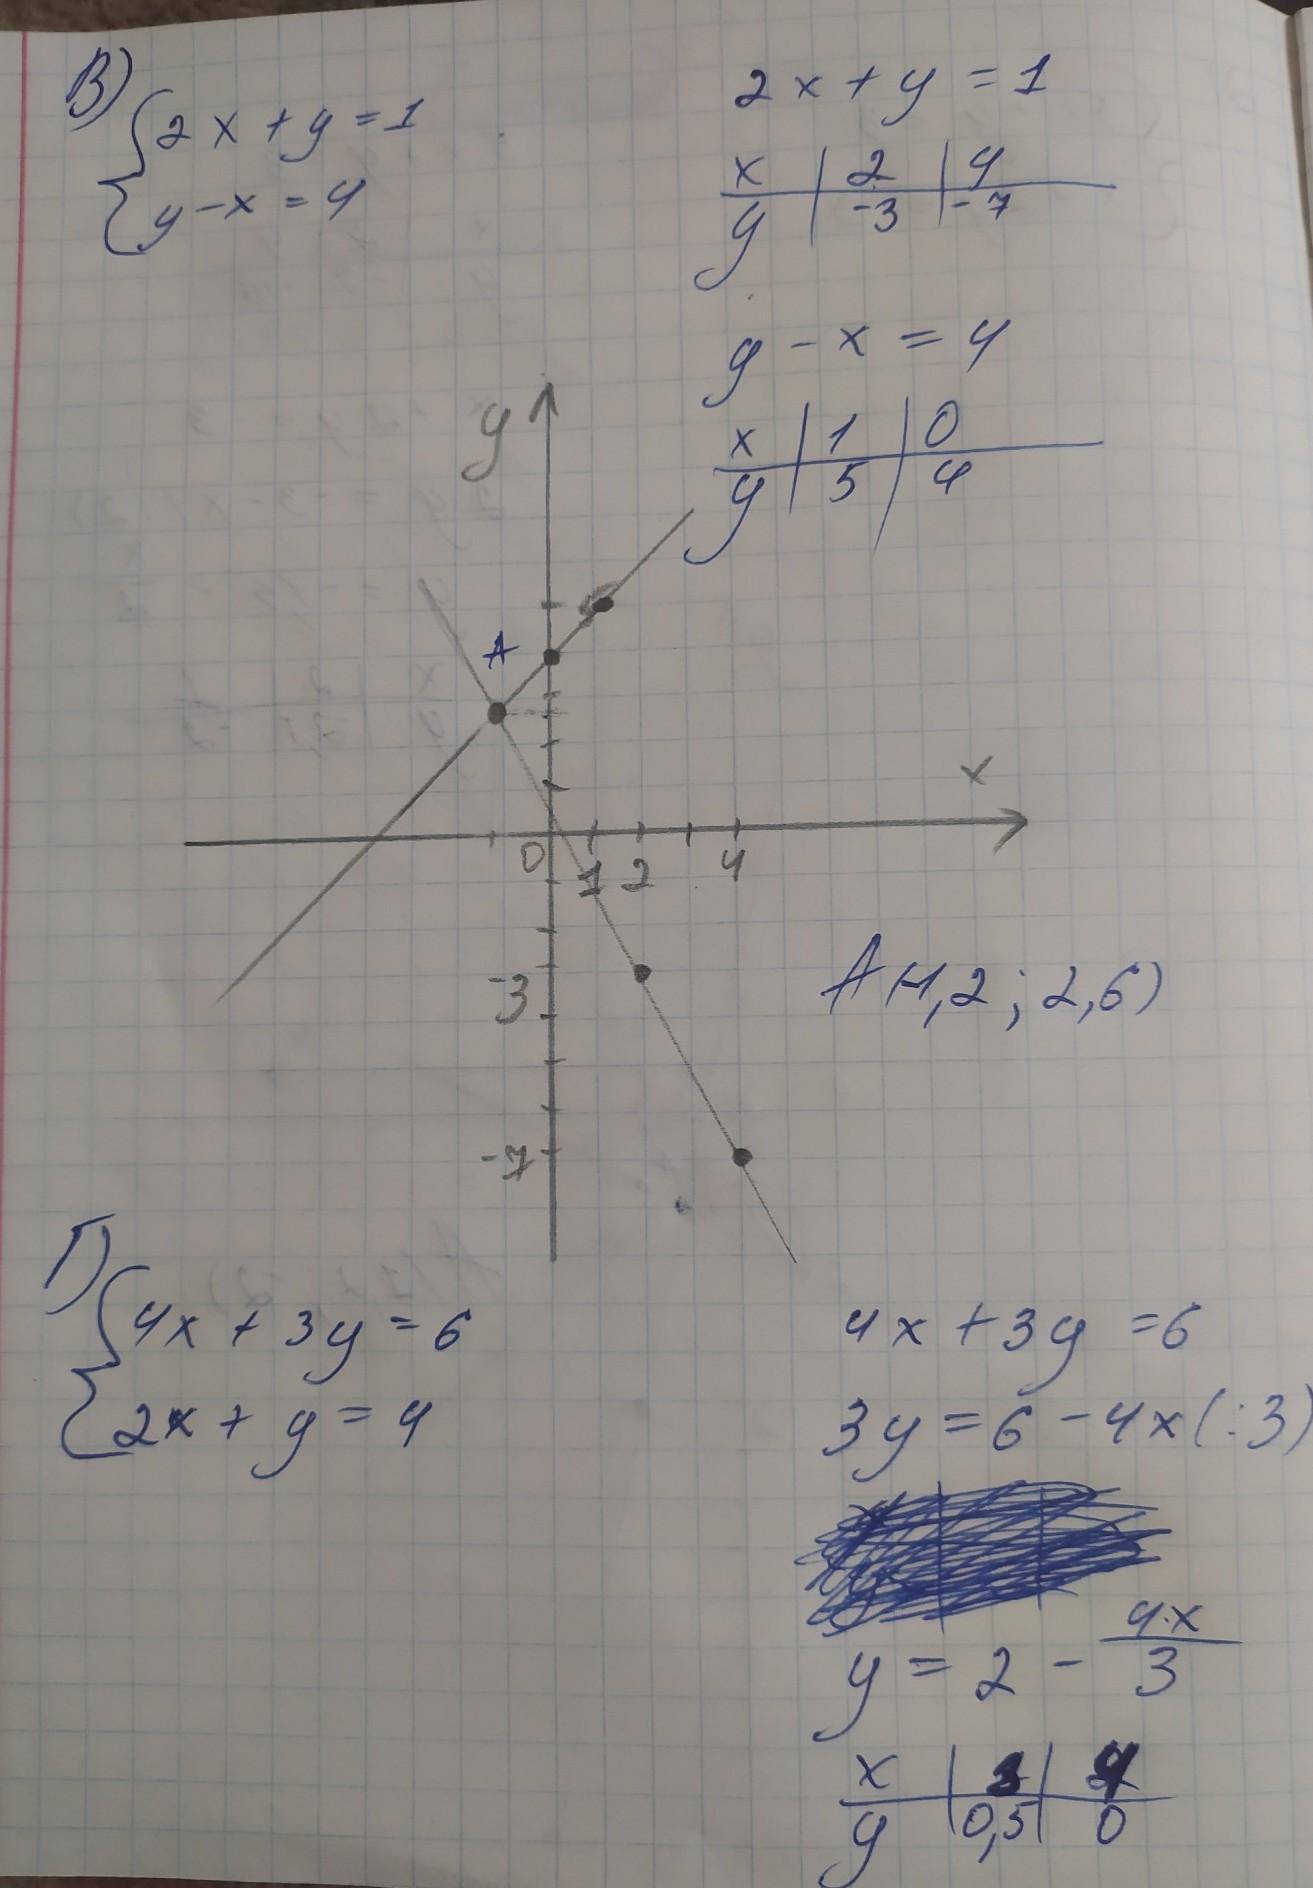 В)
{2x + y = 1
{y - x = 4
2x + y = 1
x | 2 | 4
y | -3 | -7
y - x = 4
x | 1 | 0
y | 5 | 4
y
A
x
0 1 2 4
-3
-7
A(-1,2; 2,6)
Г)
{4x + 3y = 6
{2x + y = 4
4x + 3y = 6
3y = 6 - 4x (:3)
y = 2 - 4·x/3
x
y | 0,5 | 0